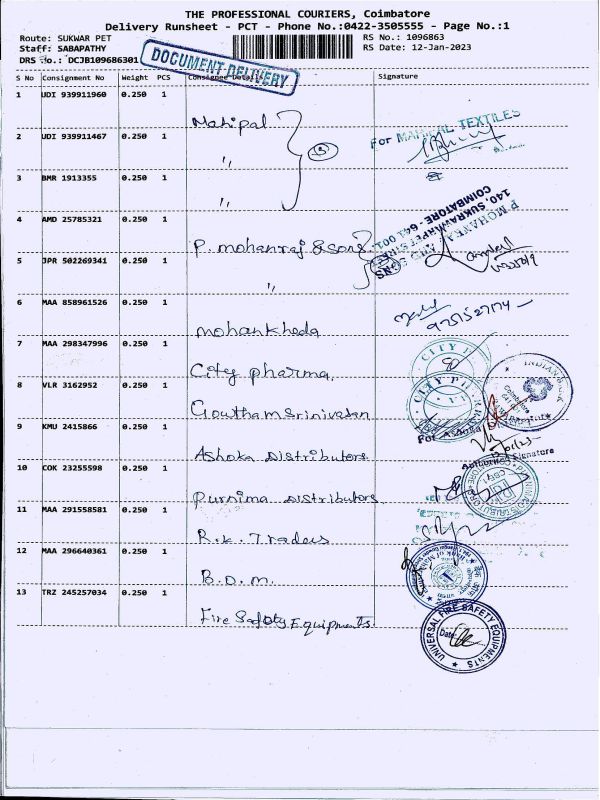 THE PROFESSIONAL COURIERS, Coimbatore
Delivery Runsheet - PCT - Phone No.:0422-3505555 - Page No.:1
Route: SUKWAR PET
RS No.: 1096863
Staff: SABAPATHY
RS Date: 12-Jan-2023
DRS No.: DCJB109686301
DOCUMENT DELIVERY
S No Consignment No Weight PCS Consignee Details Signature
1 UDI 939911960 0.250 1 Mahipal
For MAHIPAL TEXTILES
2 UDI 939911467 0.250 1 "
3 BMR 1913355 0.250 1 "
(3)
4 AMD 25785321 0.250 1 P. mohanraj & sons
P MOHANRAJ AND SONS
140, SUKRAWARPET STREET
COIMBATORE - 641 001.
5 JPR 502269341 0.250 1 "
6 MAA 858961526 0.250 1 mohankheda
9751527174
7 MAA 298347996 0.250 1 City pharma.
CITY PHARMA
8 VLR 3162952 0.250 1 Gowtham Srinivasan
INDIAN BANK
Coimbatore
9 KMU 2415866 0.250 1 Ashoka Distributors
For Ashoka Distributors
Authorised Signature
10 COK 23255598 0.250 1 Purnima Distributors
11 MAA 291558581 0.250 1 R.K. Traders
12 MAA 296640361 0.250 1 B.O.M.
13 TRZ 245257034 0.250 1 Fire Safety Equipments.
UNIVERSAL FIRE SAFETY EQUIPMENTS
Date: